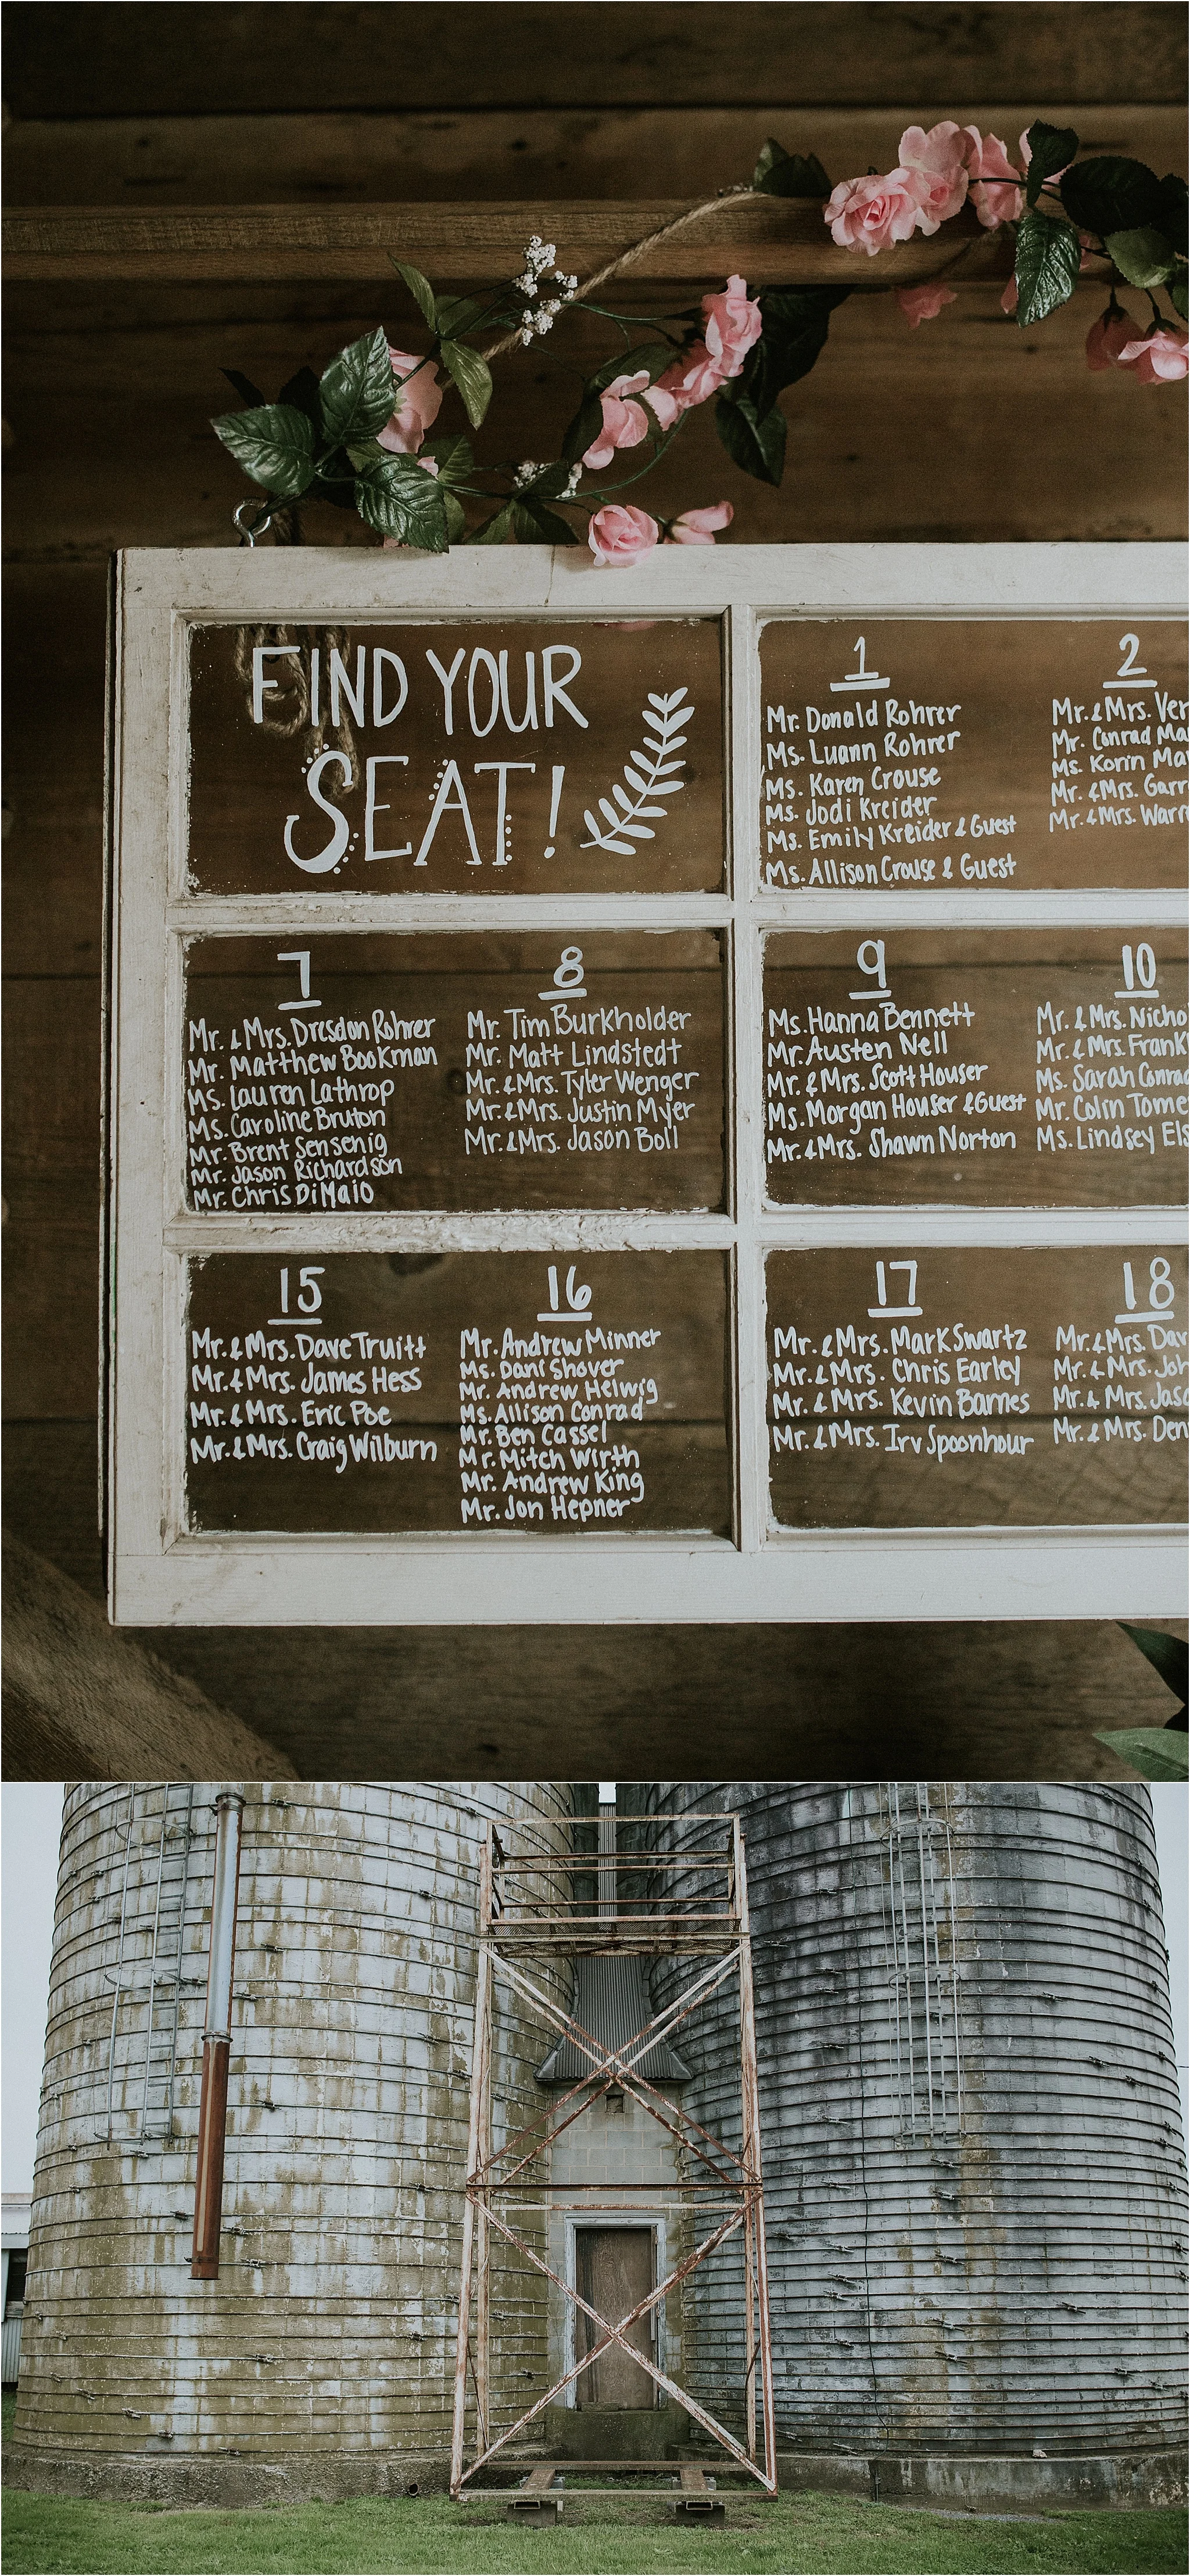 FIND YOUR
SEAT!
1
Mr. Donald Rohrer
Ms. Luann Rohrer
Ms. Karen Crouse
Ms. Jodi Kreider
Ms. Emily Kreider & Guest
Ms. Allison Crouse & Guest
2
Mr. & Mrs.
Mr. Conrad
Ms. Korin
Mr. & Mrs.
Mr. & Mrs.
7
Mr. & Mrs. Dresdon Rohrer
Mr. Matthew Bookman
Ms. Lauren Lathrop
Ms. Caroline Bruton
Mr. Brent Sensenig
Mr. Jason Richardson
Mr. Chris DiMaio
8
Mr. Tim Burkholder
Mr. Matt Lindstedt
Mr. & Mrs. Tyler Wenger
Mr. & Mrs. Justin Myer
Mr. & Mrs. Jason Boll
9
Ms. Hanna Bennett
Mr. Austen Nell
Mr. & Mrs. Scott Houser
Ms. Morgan Houser & Guest
Mr. & Mrs. Shawn Norton
10
Mr. & Mrs.
Mr. & Mrs.
Ms. Sarah
Mr. Colin
Ms. Lindsey
15
Mr. & Mrs. Dave Truitt
Mr. & Mrs. James Hess
Mr. & Mrs. Eric Poe
Mr. & Mrs. Craig Wilburn
16
Mr. Andrew Minner
Ms. Dani Shover
Mr. Andrew Helwig
Ms. Allison Conrad
Mr. Ben Cassel
Mr. Mitch Wirth
Mr. Andrew King
Mr. Jon Hepner
17
Mr. & Mrs. Mark Swartz
Mr. & Mrs. Chris Earley
Mr. & Mrs. Kevin Barnes
Mr. & Mrs. Irv Spoonhour
18
Mr. & Mrs.
Mr. & Mrs.
Mr. & Mrs.
Mr. & Mrs.